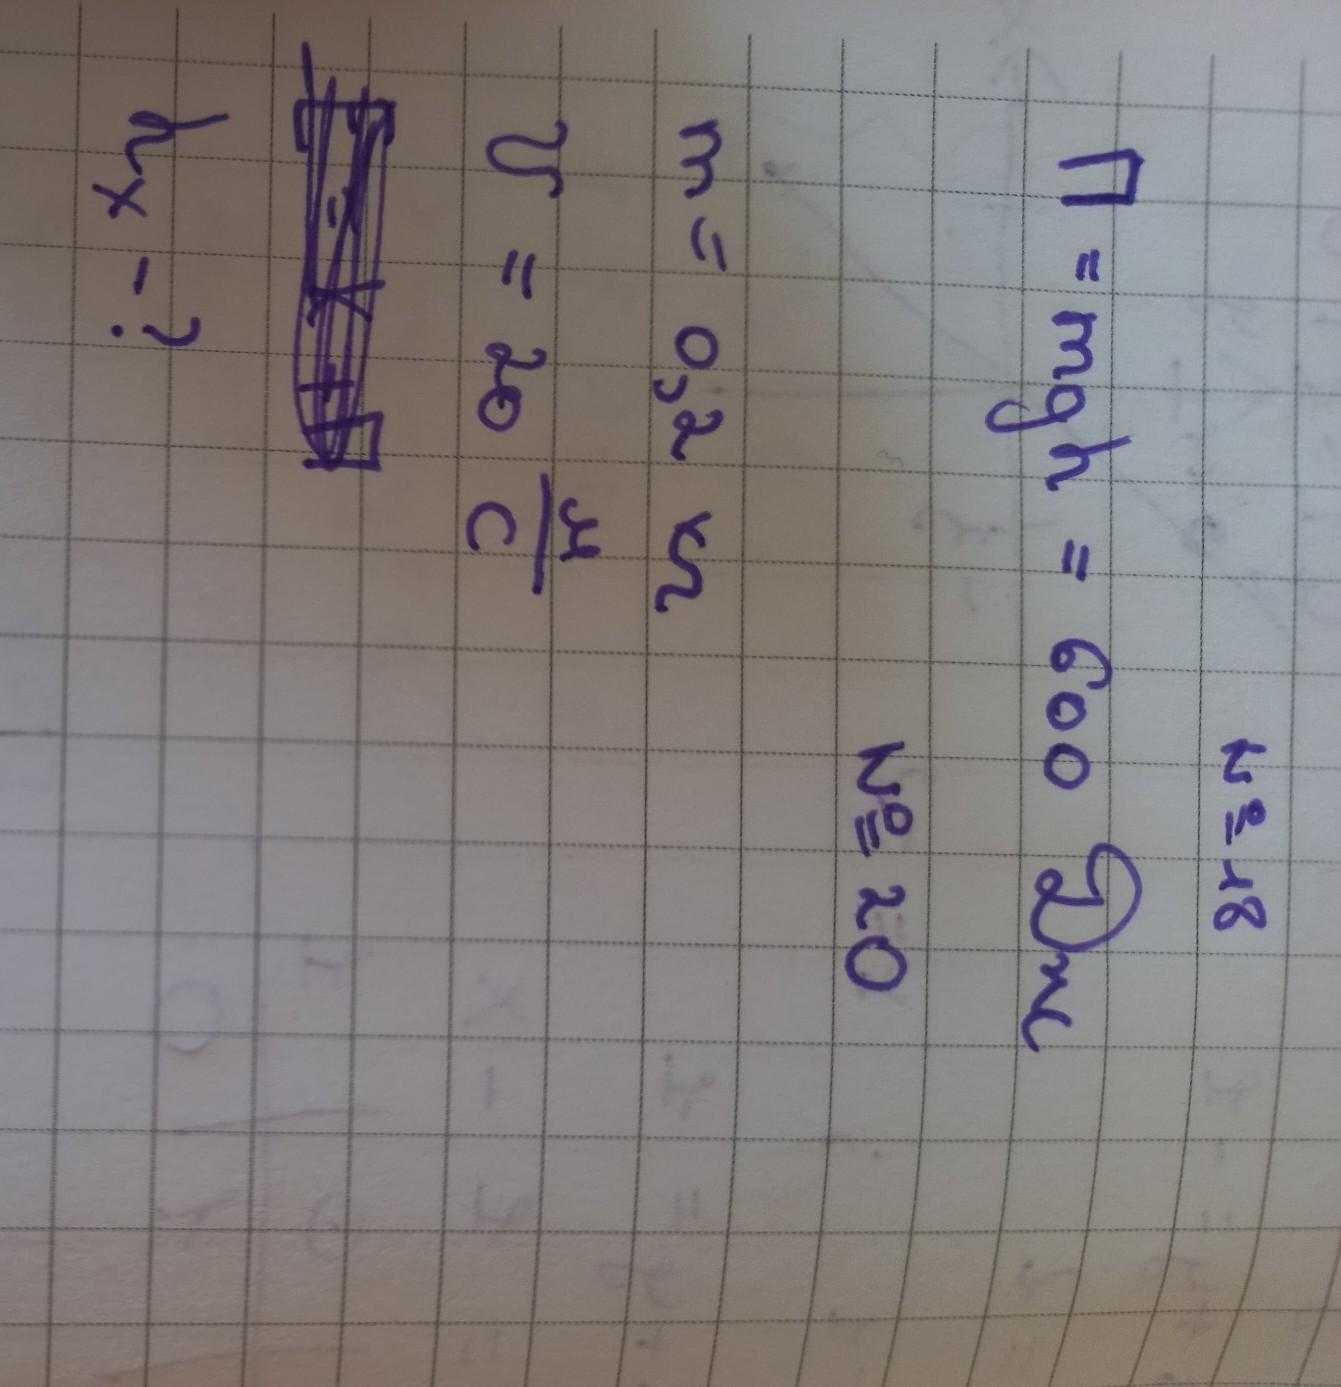 № 18
П = mgh = 600 Дж
№ 20
m = 0,2 кг
v = 20 м/с
hx - ?